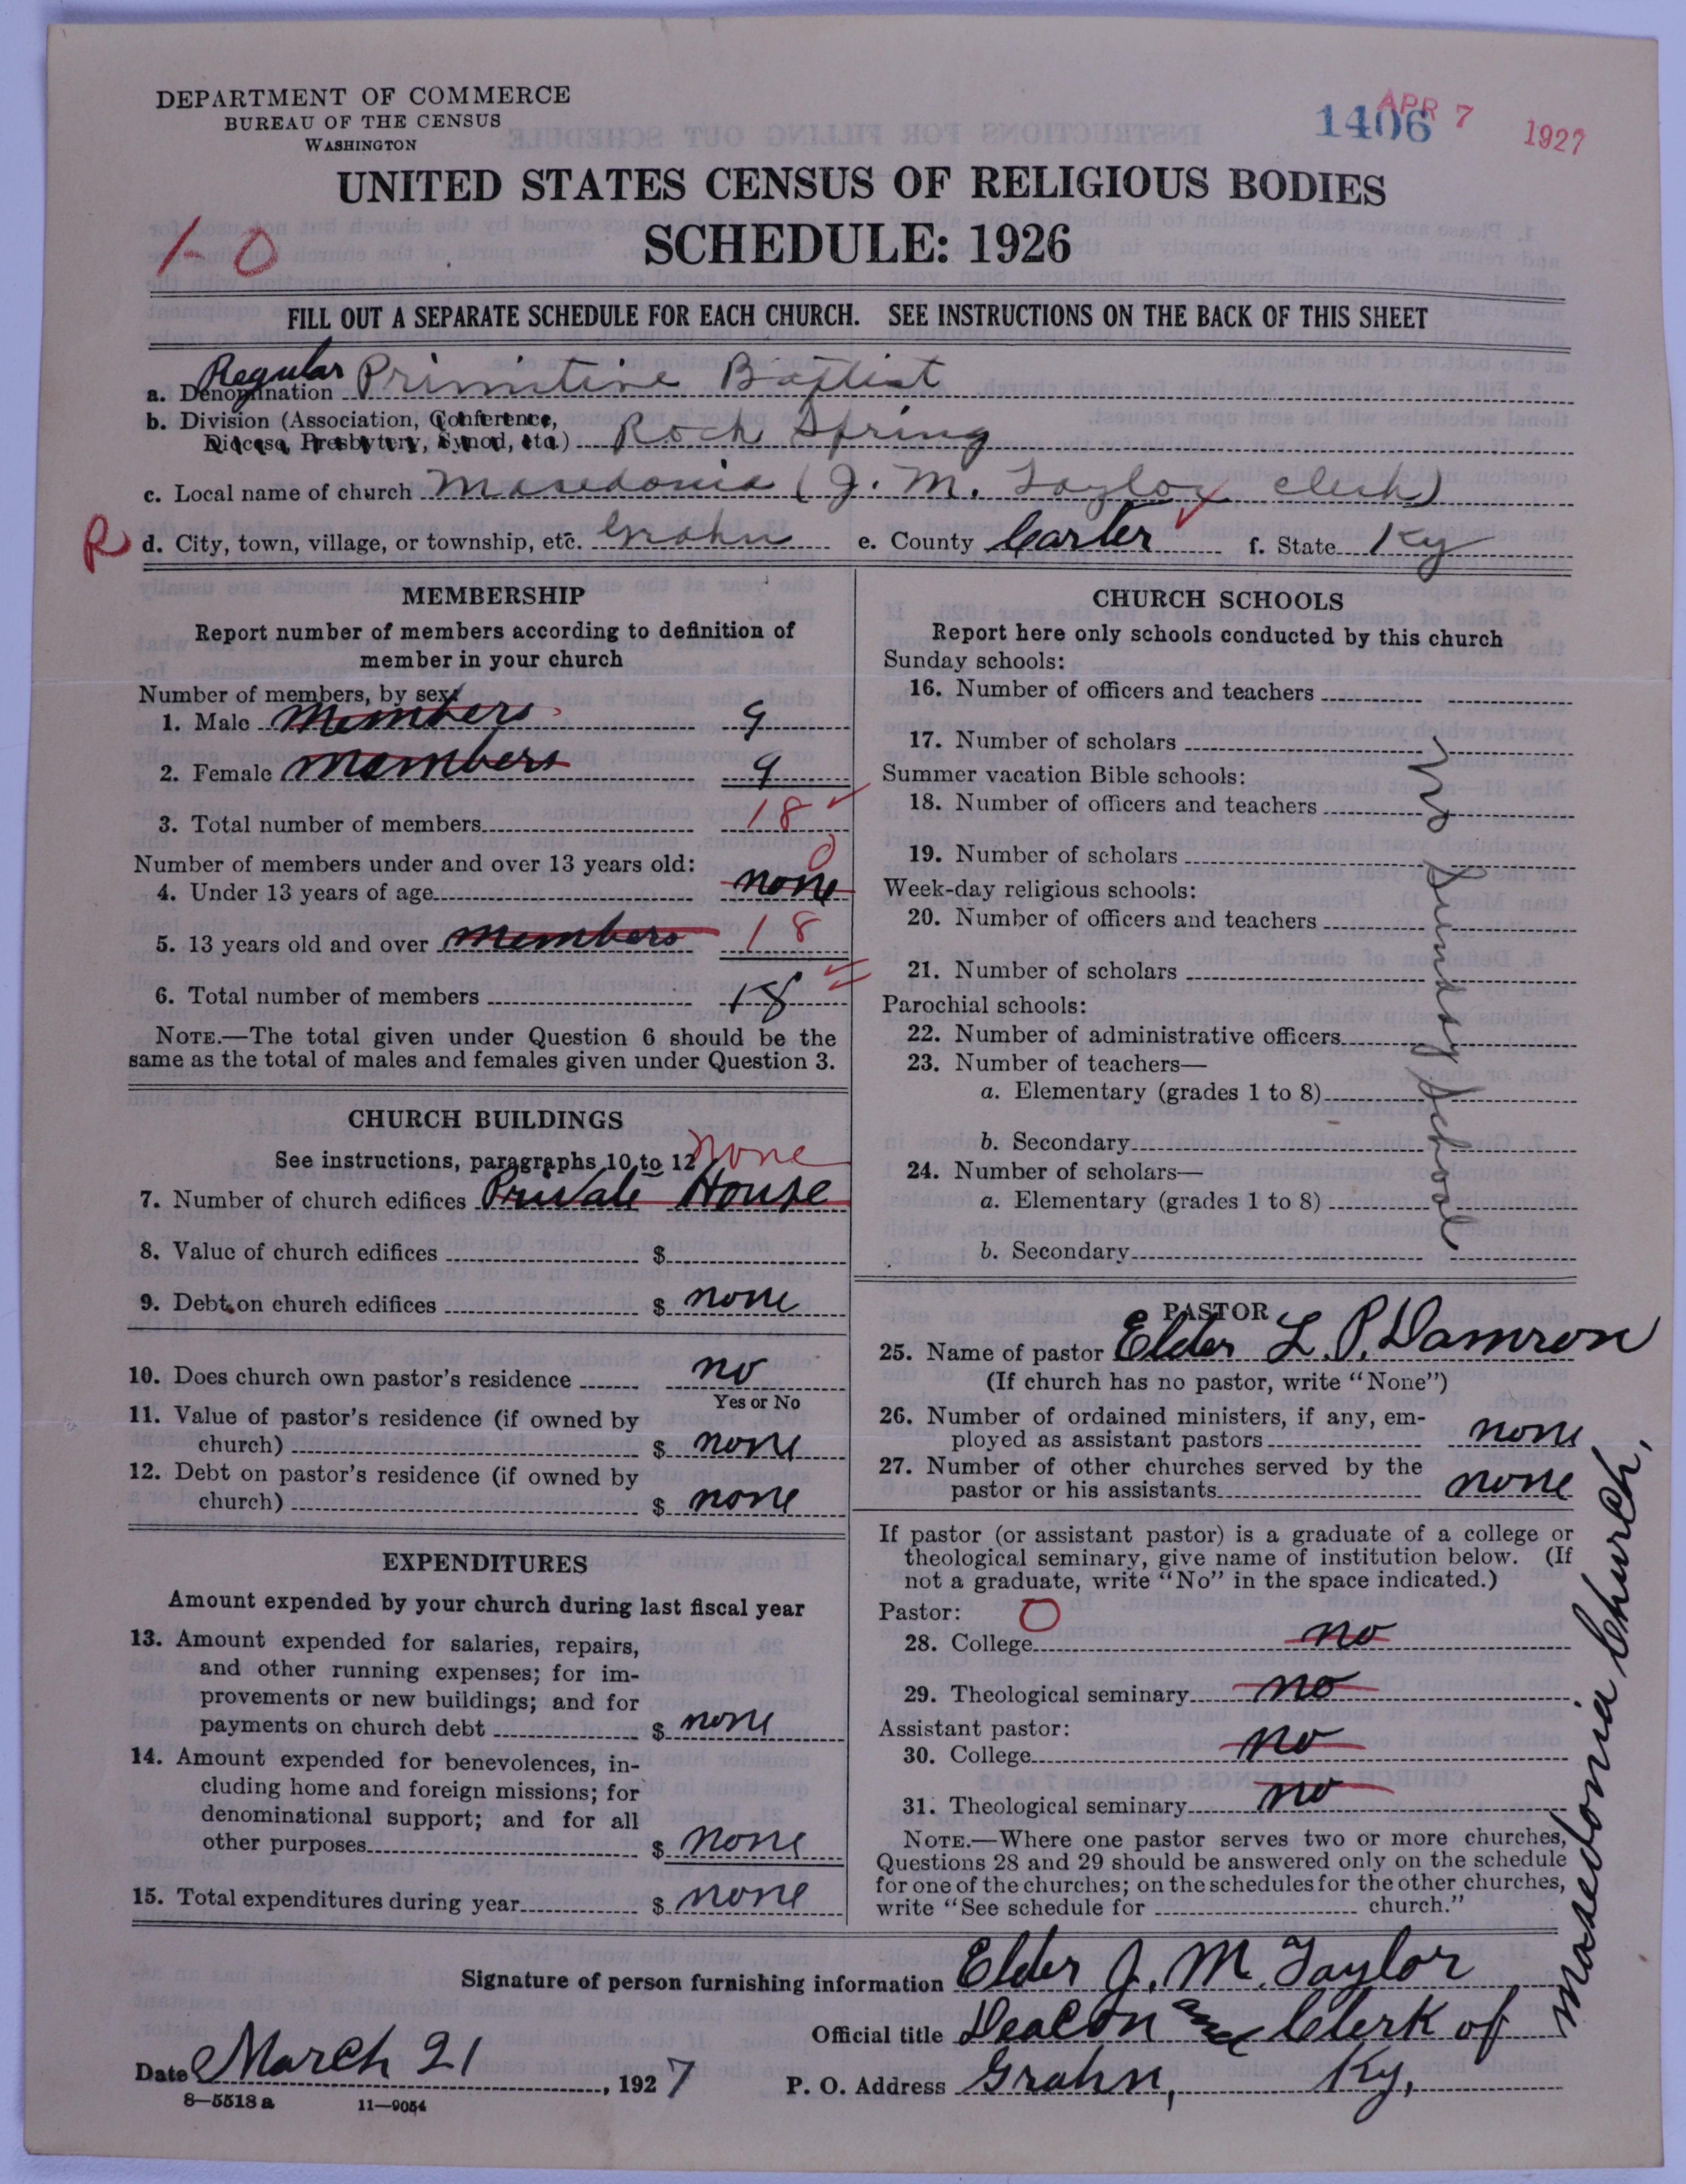 DEPARTMENT OF COMMERCE
BUREAU OF THE CENSUS
WASHINGTON
1406
APR 7 1927
UNITED STATES CENSUS OF RELIGIOUS BODIES
SCHEDULE: 1926
1-0
FILL OUT A SEPARATE SCHEDULE FOR EACH CHURCH. SEE INSTRUCTIONS ON THE BACK OF THIS SHEET
Regular
a. Denomination Primitive Baptist
b. Division (Association, Conference,
Diocese, Presbytery, Synod, etc.) Rock Spring
c. Local name of church Masedonia (J. M. Taylor clerk)
R d. City, town, village, or township, etc. Grahn e. County Carter f. State Ky
MEMBERSHIP
Report number of members according to definition of
member in your church
Number of members, by sex:
1. Male members 9
2. Female members 9
3. Total number of members 18
Number of members under and over 13 years old: 0
4. Under 13 years of age none
5. 13 years old and over members 18
6. Total number of members 18
NOTE.—The total given under Question 6 should be the
same as the total of males and females given under Question 3.
CHURCH BUILDINGS
See instructions, paragraphs 10 to 12 None
7. Number of church edifices Private House
8. Value of church edifices $
9. Debt on church edifices $ none
10. Does church own pastor's residence no
Yes or No
11. Value of pastor's residence (if owned by
church) $ none
12. Debt on pastor's residence (if owned by
church) $ none
EXPENDITURES
Amount expended by your church during last fiscal year
13. Amount expended for salaries, repairs,
and other running expenses; for im-
provements or new buildings; and for
payments on church debt $ none
14. Amount expended for benevolences, in-
cluding home and foreign missions; for
denominational support; and for all
other purposes $ none
15. Total expenditures during year $ none
CHURCH SCHOOLS
Report here only schools conducted by this church
Sunday schools:
16. Number of officers and teachers
17. Number of scholars
Summer vacation Bible schools:
18. Number of officers and teachers
19. Number of scholars
Week-day religious schools:
20. Number of officers and teachers
21. Number of scholars
Parochial schools:
22. Number of administrative officers
23. Number of teachers—
a. Elementary (grades 1 to 8)
b. Secondary
24. Number of scholars—
a. Elementary (grades 1 to 8)
b. Secondary
No Sunday School
PASTOR
25. Name of pastor Elder L. P. Damron
(If church has no pastor, write "None")
26. Number of ordained ministers, if any, em-
ployed as assistant pastors none
27. Number of other churches served by the
pastor or his assistants none
If pastor (or assistant pastor) is a graduate of a college or
theological seminary, give name of institution below. (If
not a graduate, write "No" in the space indicated.)
Pastor: 0
28. College no
29. Theological seminary no
Assistant pastor:
30. College no
31. Theological seminary no
NOTE.—Where one pastor serves two or more churches,
Questions 28 and 29 should be answered only on the schedule
for one of the churches; on the schedules for the other churches,
write "See schedule for church."
Signature of person furnishing information Elder J. M. Taylor
Official title Deacon and Clerk of
Masedonia Church,
Date March 21, 1927 P. O. Address Grahn, Ky,
8—5518a 11—9054